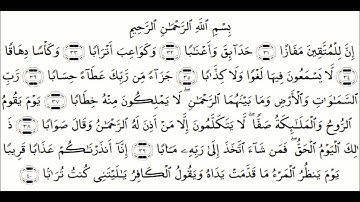 بِسْمِ ٱللَّهِ ٱلرَّحْمَـٰنِ ٱلرَّحِيمِ
إِنَّ لِلْمُتَّقِينَ مَفَازًا ٣١ حَدَآئِقَ وَأَعْنَـٰبًا ٣٢ وَكَوَاعِبَ أَتْرَابًا ٣٣ وَكَأْسًا دِهَاقًا
٣٤ لَّا يَسْمَعُونَ فِيهَا لَغْوًا وَلَا كِذَّٰبًا ٣٥ جَزَآءً مِّن رَّبِّكَ عَطَآءً حِسَابًا ٣٦ رَّبِّ
ٱلسَّمَـٰوَٰتِ وَٱلْأَرْضِ وَمَا بَيْنَهُمَا ٱلرَّحْمَـٰنِ ۖ لَا يَمْلِكُونَ مِنْهُ خِطَابًا ٣٧ يَوْمَ يَقُومُ
ٱلرُّوحُ وَٱلْمَلَـٰٓئِكَةُ صَفًّا ۖ لَّا يَتَكَلَّمُونَ إِلَّا مَنْ أَذِنَ لَهُ ٱلرَّحْمَـٰنُ وَقَالَ صَوَابًا ٣٨ ذَ
ٰلِكَ ٱلْيَوْمُ ٱلْحَقُّ ۖ فَمَن شَآءَ ٱتَّخَذَ إِلَىٰ رَبِّهِۦ مَـَٔابًا ٣٩ إِنَّآ أَنذَرْنَـٰكُمْ عَذَابًا قَرِيبًا
يَوْمَ يَنظُرُ ٱلْمَرْءُ مَا قَدَّمَتْ يَدَاهُ وَيَقُولُ ٱلْكَافِرُ يَـٰلَيْتَنِى كُنتُ تُرَٰبًۢا ٤٠